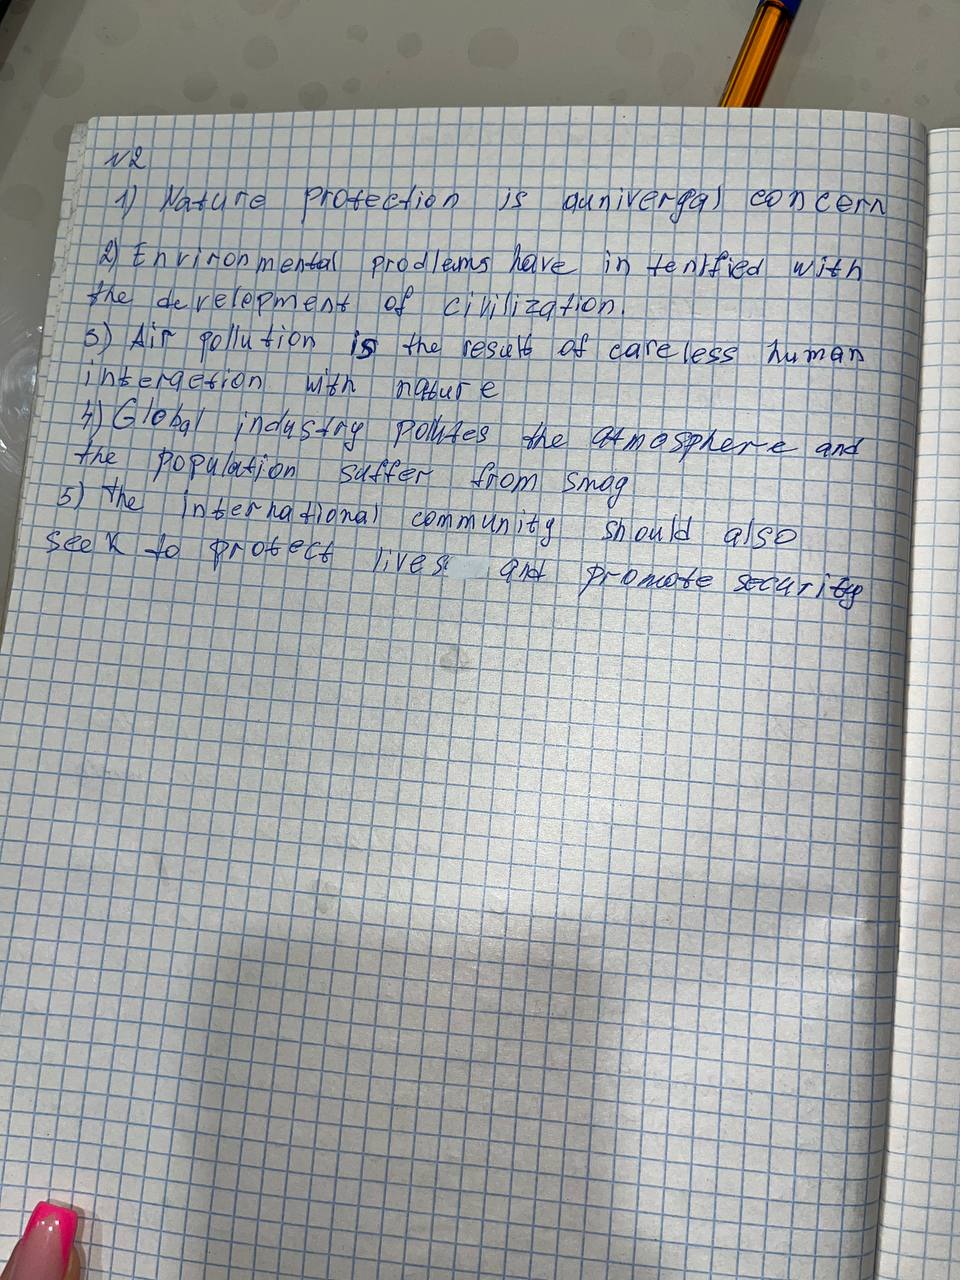 №2
1) Nature protection is aunivergal concern
2) Environmental prodlems have in tenified with
the develepment of civilization.
3) Air pollution is the result of careless human
interaction with nature
4) Global industry polutes the atmosphere and
the population suffer from smag
5) the international community should also
seek to protect lives and promote security